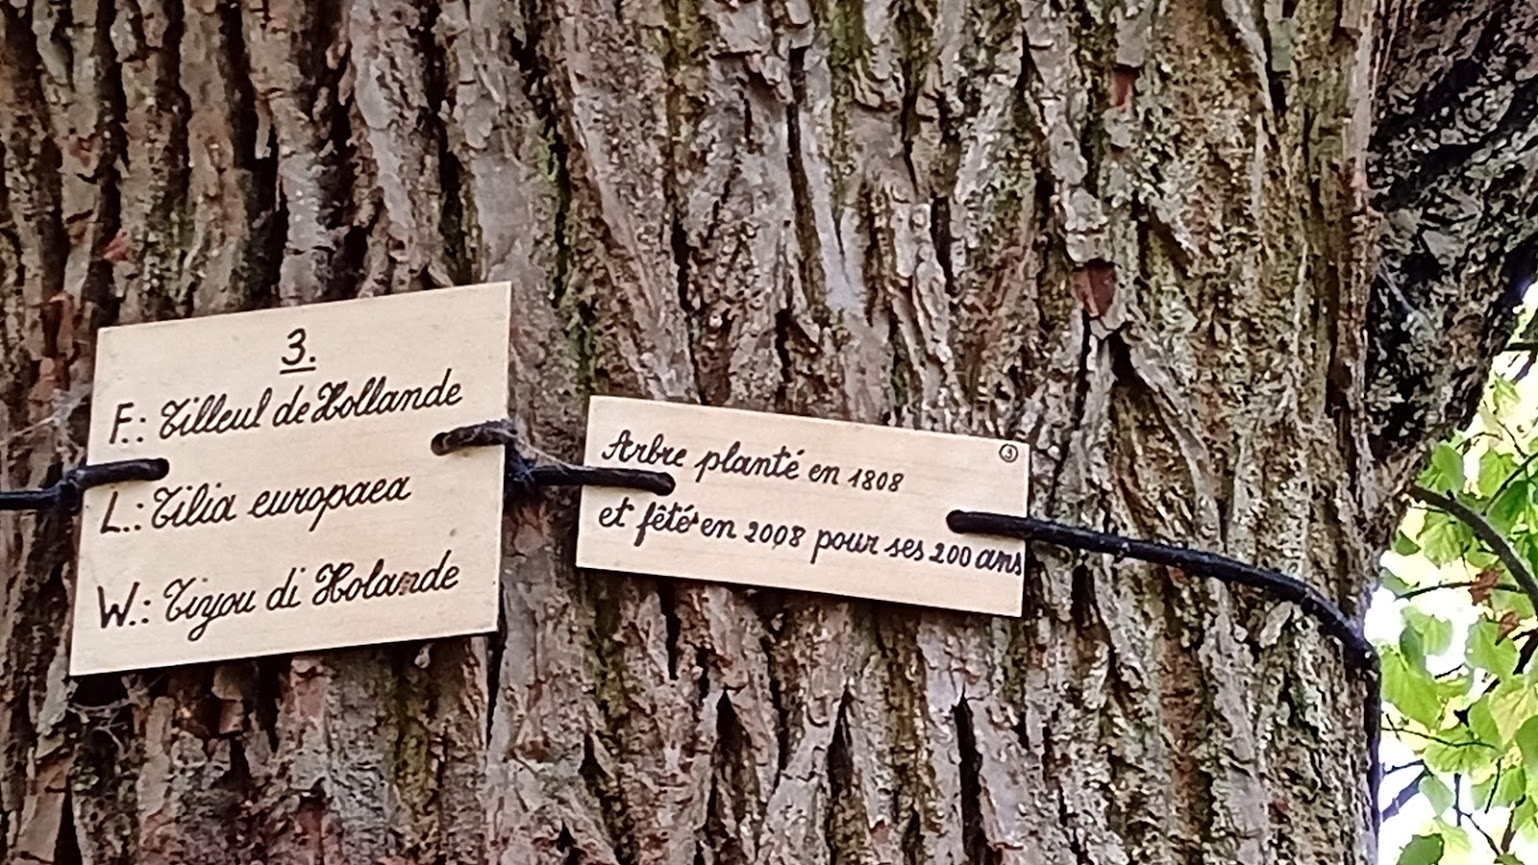 3.
F.: Tilleul de Hollande
L.: Tilia europaea
W.: Tiyou di Holande
Arbre planté en 1808
et fêté en 2008 pour ses 200 ans
3